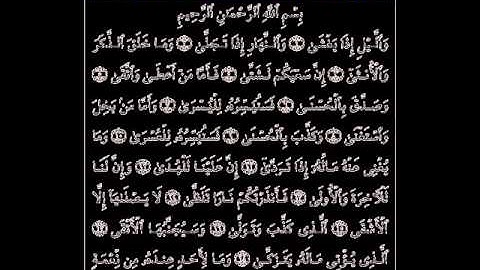 بِسْمِ ٱللَّهِ ٱلرَّحْمَٰنِ ٱلرَّحِيمِ
وَٱلَّيْلِ إِذَا يَغْشَىٰ ۝ وَٱلنَّهَارِ إِذَا تَجَلَّىٰ ۝ وَمَا خَلَقَ ٱلذَّكَرَ
وَٱلْأُنثَىٰٓ ۝ إِنَّ سَعْيَكُمْ لَشَتَّىٰ ۝ فَأَمَّا مَنْ أَعْطَىٰ وَٱتَّقَىٰ ۝
وَصَدَّقَ بِٱلْحُسْنَىٰ ۝ فَسَنُيَسِّرُهُۥ لِلْيُسْرَىٰ ۝ وَأَمَّا مَنۢ بَخِلَ
وَٱسْتَغْنَىٰ ۝ وَكَذَّبَ بِٱلْحُسْنَىٰ ۝ فَسَنُيَسِّرُهُۥ لِلْعُسْرَىٰ ۝ وَمَا
يُغْنِى عَنْهُ مَالُهُۥٓ إِذَا تَرَدَّىٰٓ ۝ إِنَّ عَلَيْنَا لَلْهُدَىٰ ۝ وَإِنَّ لَنَا
لَلْءَاخِرَةَ وَٱلْأُولَىٰ ۝ فَأَنذَرْتُكُمْ نَارًا تَلَظَّىٰ ۝ لَا يَصْلَىٰهَآ إِلَّا
ٱلْأَشْقَى ۝ ٱلَّذِى كَذَّبَ وَتَوَلَّىٰ ۝ وَسَيُجَنَّبُهَا ٱلْأَتْقَى ۝
ٱلَّذِى يُؤْتِى مَالَهُۥ يَتَزَكَّىٰ ۝ وَمَا لِأَحَدٍ عِندَهُۥ مِن نِّعْمَةٍ